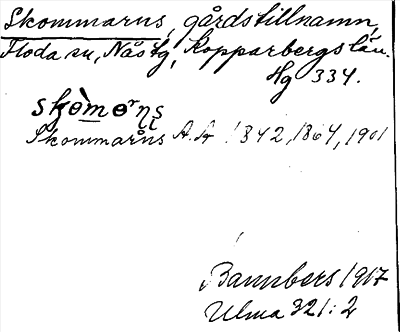 Skommarns, gårdstillnamn,
Floda sn, Nås tg, Kopparbergs län.
Hg 334.
Skommarns A.A. 1842, 1864, 1901
Bannbers 1917
Ulma 321:2